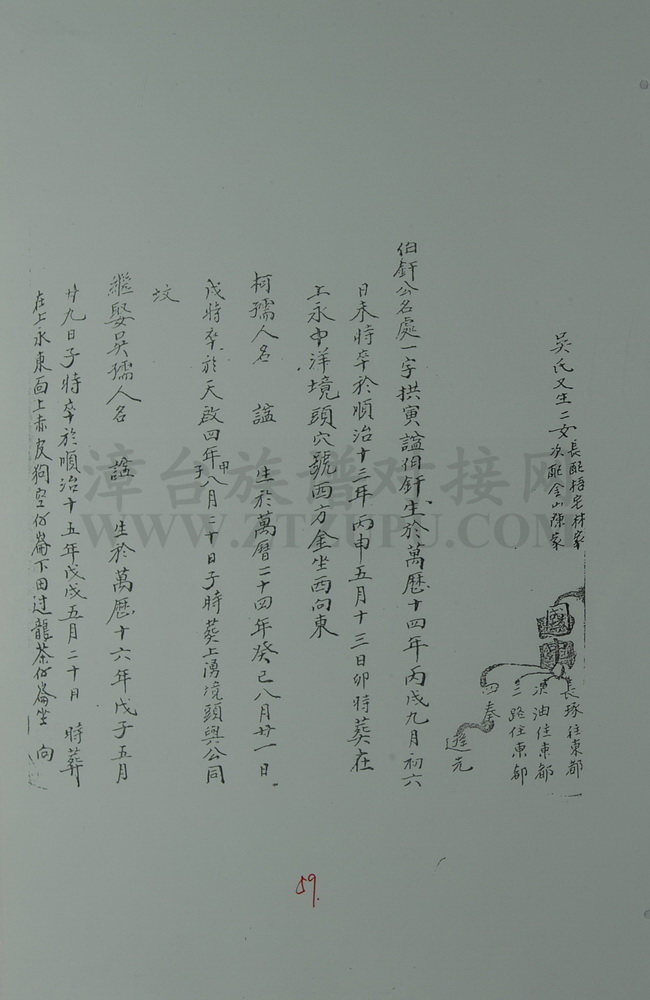 吳氏又生二女長配梧宅林家
次配金山陳家
國
長琢住東都
次油住東都
三路住東都
四奏
進先
伯釬公名處一字拱寅諡伯釬生於萬歷十四年丙戌九月初六
日未時卒於順治十三年丙申五月十三日卯時葬在
上永中洋境頭穴號西方金坐西向東
柯孺人名 諡 生於萬曆二十四年癸巳八月廿一日
戌時卒於天啟四年甲子八月二十日子時葬上湧境頭與公同
坟
繼娶吳孺人名 諡 生於萬歷十六年戊子五月
廿九日子時卒於順治十五年戊戌五月二十日 時葬
在上永東面上赤皮狗空仔崙下田过龍茶仔崙坐 向
漳台族谱对接网
WWW.ZTZUPU.COM
59.